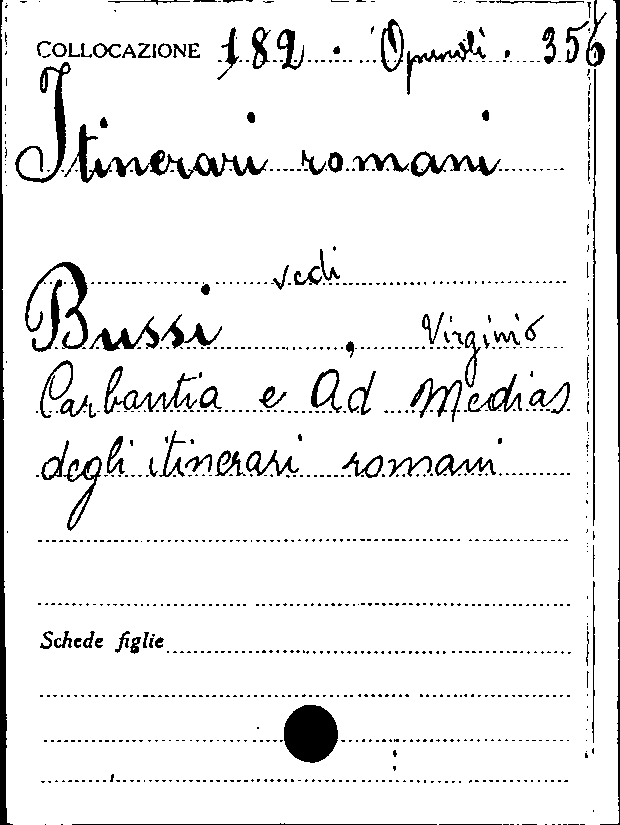 COLLOCAZIONE 182 · Opuscoli · 356
Itinerari romani
vedi
Bussi, Virginio
Carbantia e Ad Medias
degli itinerari romani
Schede figlie